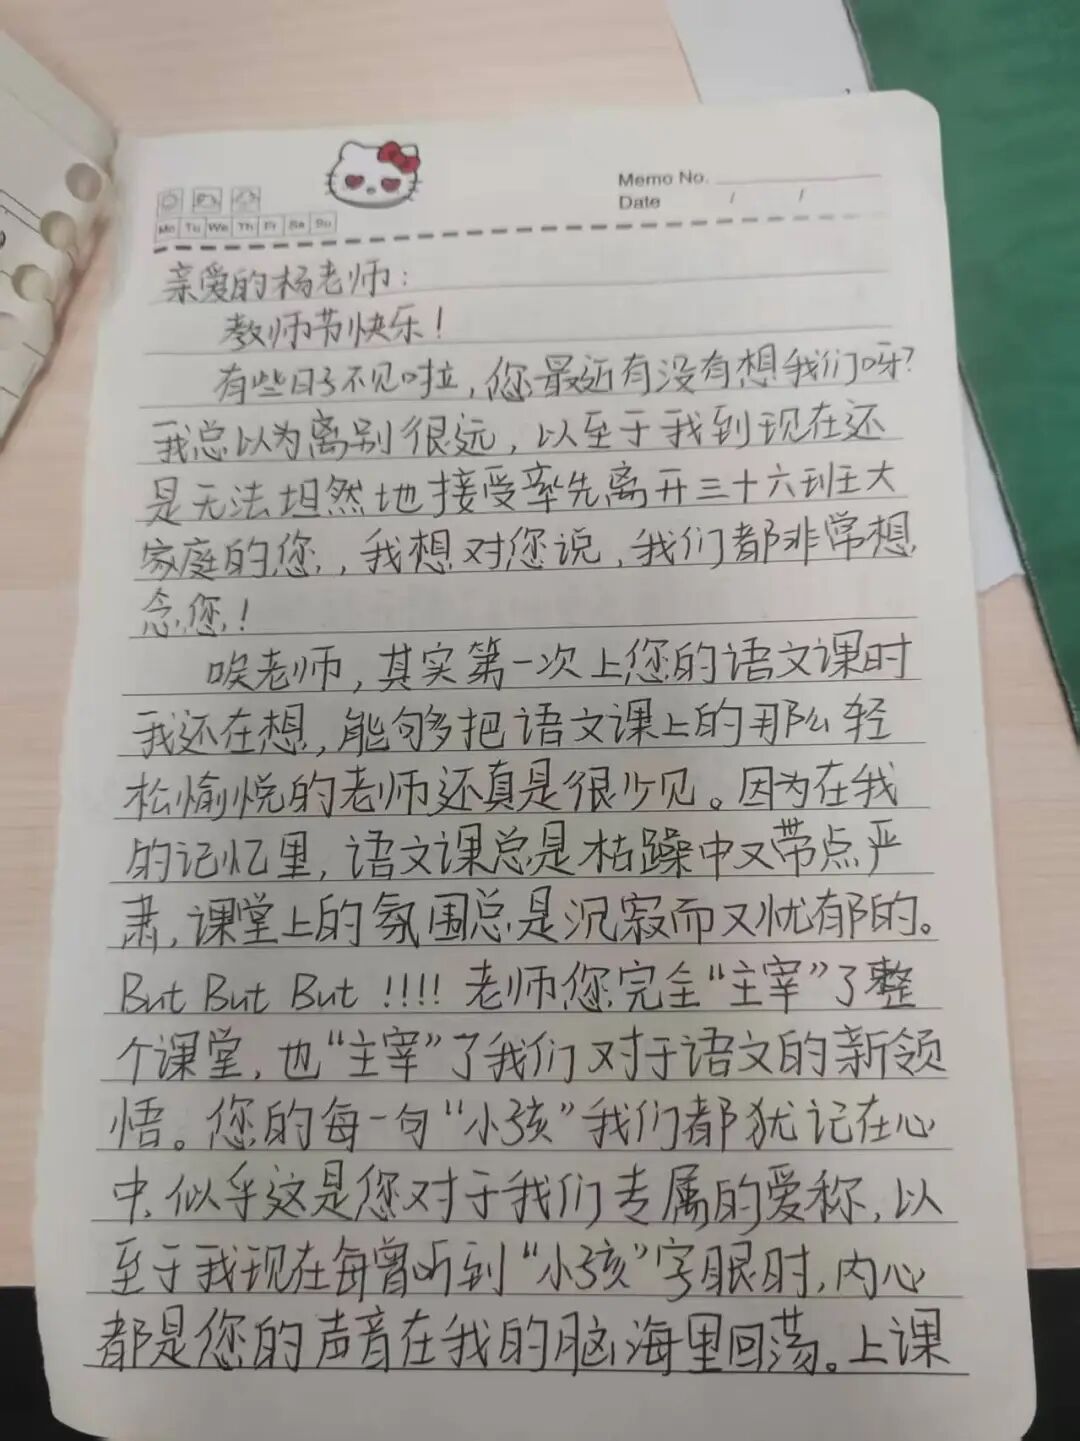 Memo No.
Date / /
Mo Tu We Th Fr Sa Su
亲爱的杨老师：
教师节快乐！
有些日子不见啦，您最近有没有想我们呀？
我总以为离别很远，以至于我到现在还
是无法坦然地接受率先离开三十六班大
家庭的您，我想对您说，我们都非常想
念您！
唉老师，其实第一次上您的语文课时
我还在想，能够把语文课上的那么轻
松愉悦的老师还真是很少见。因为在我
的记忆里，语文课总是枯躁中又带点严
肃，课堂上的氛围总是沉寂而又忧郁的。
But But But !!!! 老师您完全“主宰”了整
个课堂，也“主宰”了我们对于语文的新领
悟。您的每一句“小孩”我们都犹记在心
中，似乎这是您对于我们专属的爱称，以
至于我现在每曾听到“小孩”字眼时，内心
都是您的声音在我的脑海里回荡。上课